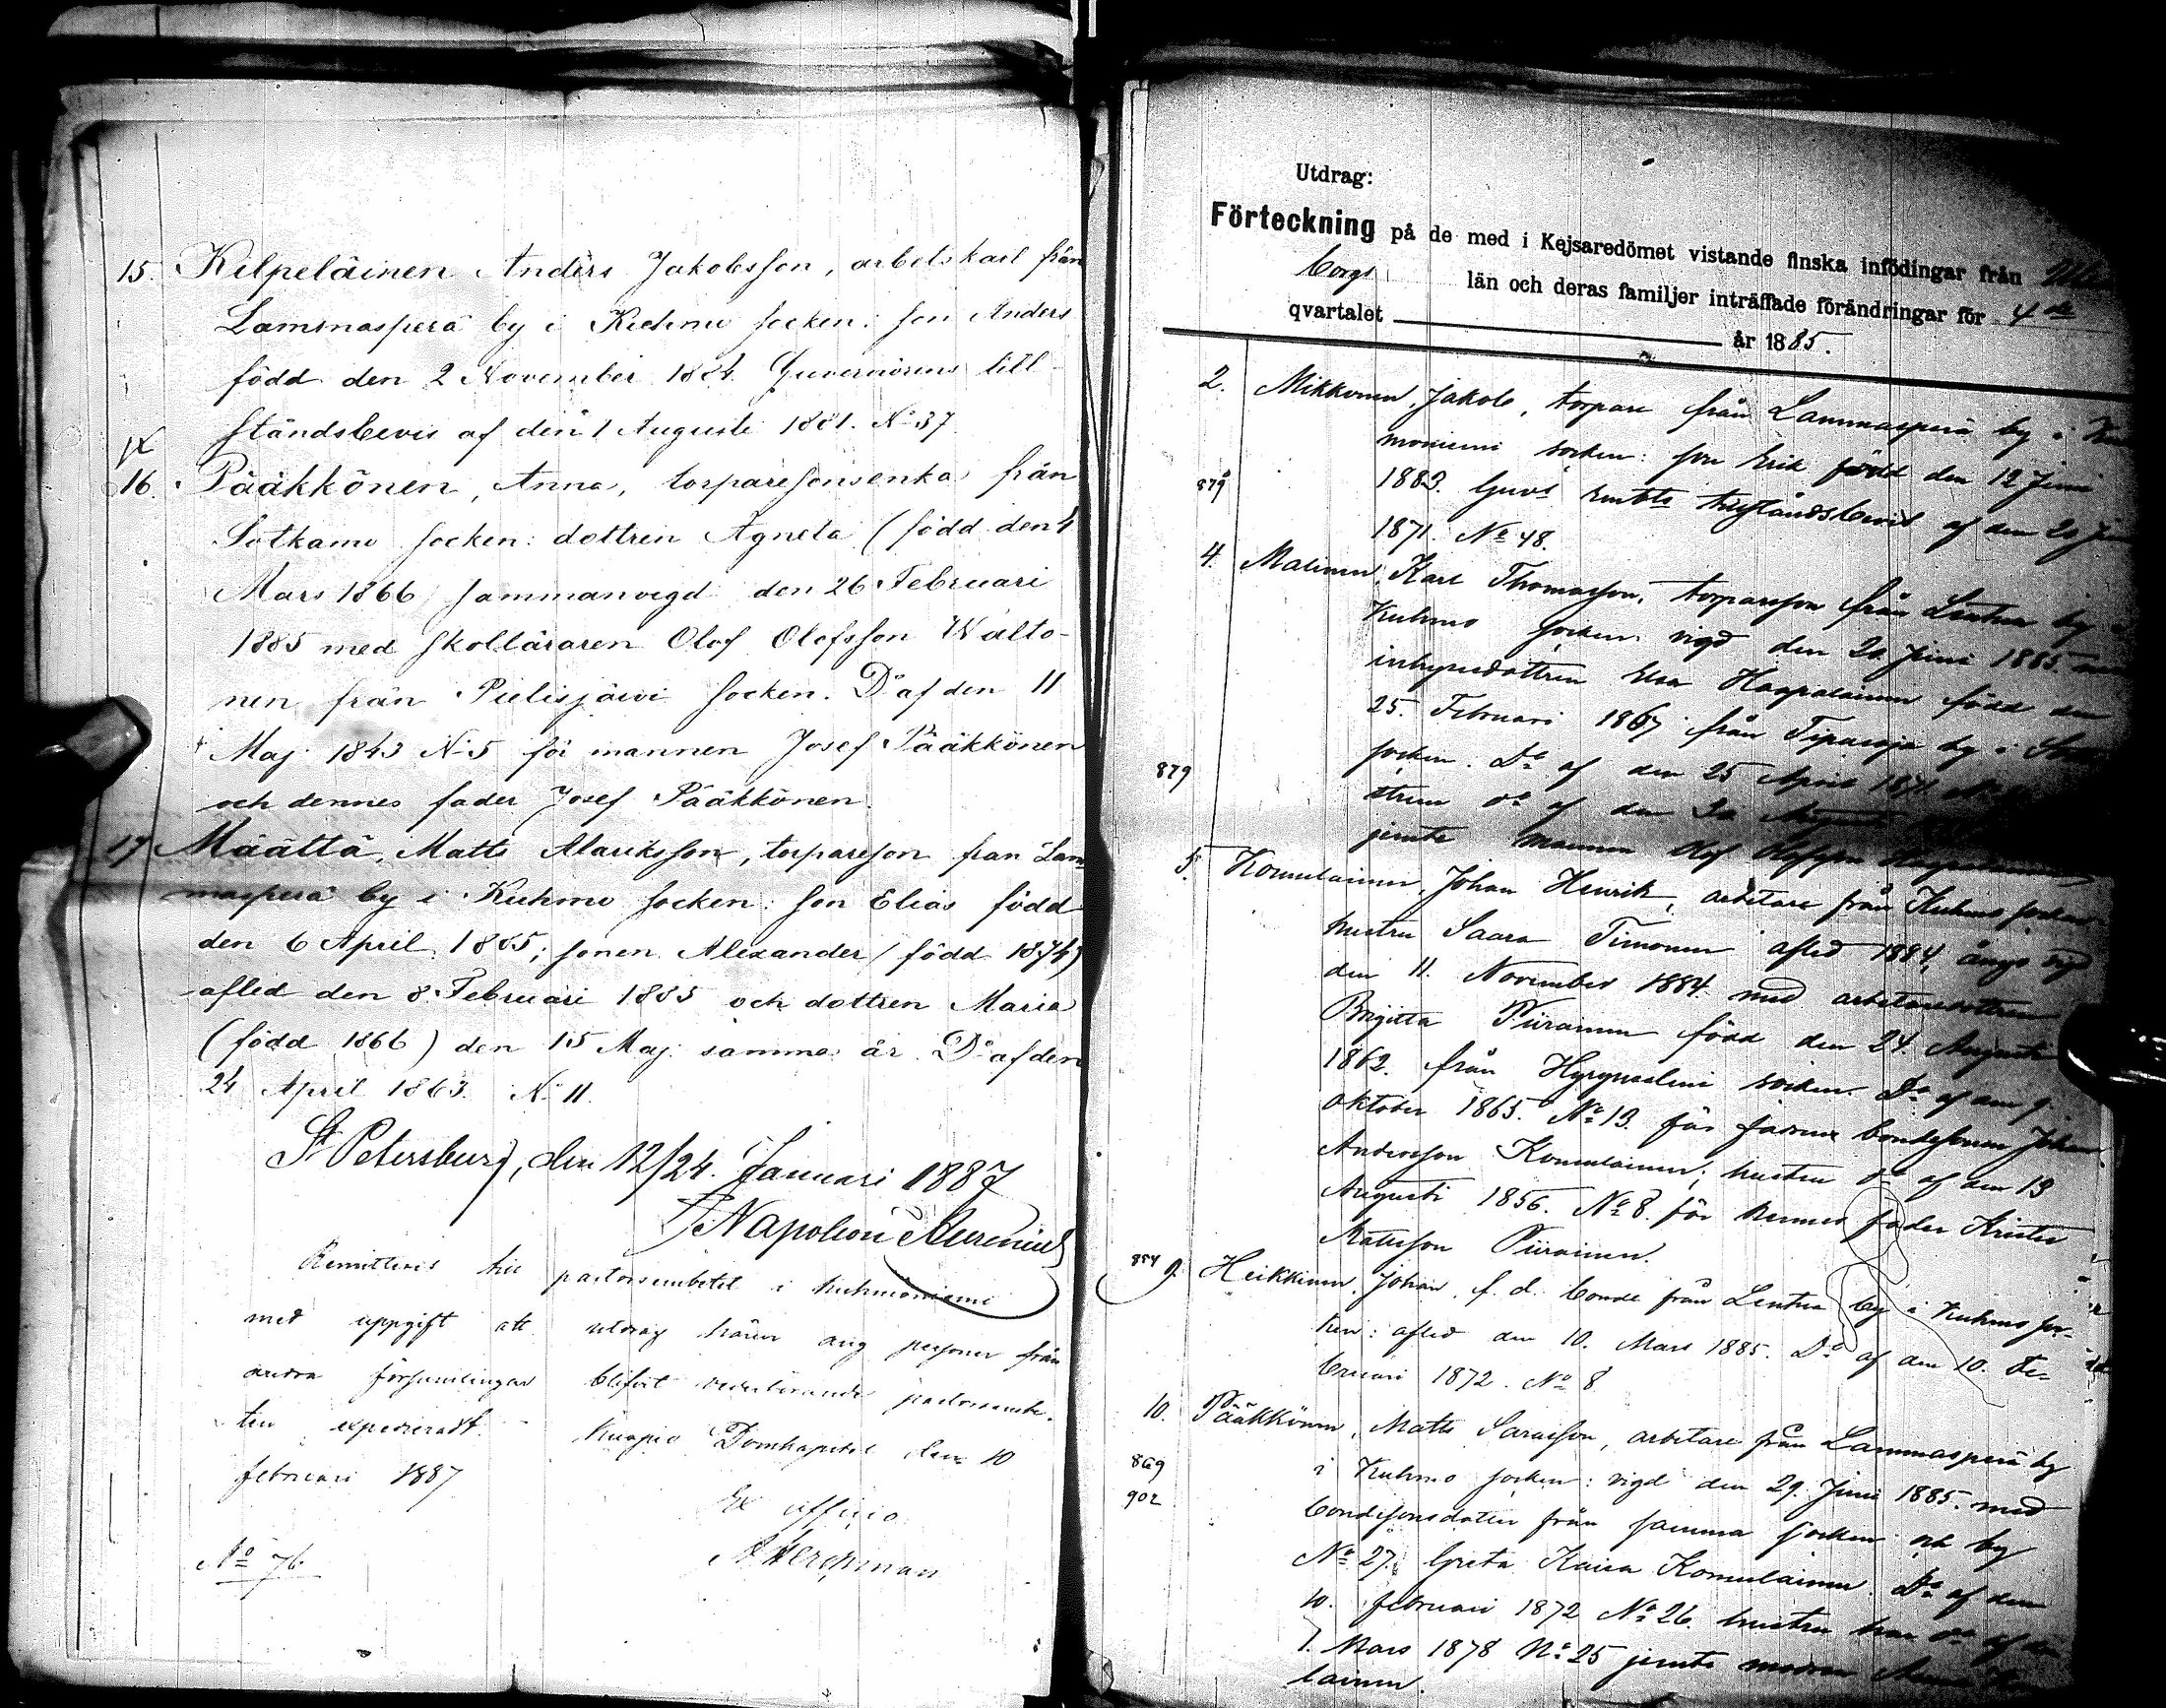 15. Kilpeläinen Anders Jakobsson, arbetskarl från
Lammasperä by i Kuhmo socken: son Anders
född den 2 November 1884. Guvernörens till-
ståndsbevis af den 1 Augusti 1881. No 37.
16. Pääkkönen, Anna, torparesonsenka från
Sotkamo socken: dottren Agneta (född den 4
Mars 1866) sammanvigd den 26 Februari
1885 med skolläraren Olof Olofsson Walto-
nen från Pielisjärvi socken. Do af den 11
Maj 1843 No 5 för mannen Josef Pääkkönen
och dennes fader Josef Pääkkönen.
17 Määttä, Matts Mariksson, torpareson från Lam-
masperä by i Kuhmo socken: son Elias född
den 6 April 1885; sonen Alexander (född 1874)
afled den 8 Februari 1885 och dottren Maria
(född 1866) den 15 Maj samma år. Do af den
24 April 1863. No 11.
St Petersburg, den 12/24. Januari 1887
Napoleon
Remitteras till pastorsembetet i Kuhmoniemi
med uppgift att utdrag härur ang personer från
andra församlingar blifvit vederbörande pastorsembe-
ten expedieradt. Kuopio Domkapitel den 10
februari 1887
Ex officio
No 76.
Utdrag:
Förteckning på de med i Kejsaredömet vistande finska infödingar från
borgs län och deras familjer inträffade förändringar för 4de
qvartalet år 1885.
2. Mikkonen, Jakob, torpare från Lammasperä by i
moniemi socken: son Erik född den 12 Juni
879 1883. Guvs embts tillståndsbevis af den 20
1871. No 48.
4. Malinen, Karl Thomasson, torpareson från Lentua by
Kuhmo socken: vigd den 20 Juni 1885
inhysesdottren Elsa Haapalainen född den
25. Februari 1867 från Tipasoja by i
879 socken. Do af den 25 April 1871
do af den 20
jemte mannen Olof Olofsson
5. Komulainen, Johan Henrik, arbetare från Kuhmo socken
hustru Saara Timonen afled 1884, ånyo vigd
den 11. November 1884 med arbetaredottren
Brigitta Piirainen född den 24. Augusti
1862. från Hyrynsalmi socken. Do af den 9.
Oktober 1865. No 13. för fadren bondesonen Johan
Andersson Komulainen; hustru do af den 13
Augusti 1856. No 8. för hennes fader Krister
Mattsson Piirainen.
854 9. Heikkinen, Johan, f. d. bonde från Lentua by i Kuhmo soc-
ken: afled den 10. Mars 1885. Do af den 10. Fe-
bruari 1872. No 8
10. Pääkkönen, Matts Sarasson, arbetare från Lammasperä by
869 i Kuhmo socken: vigd den 29. Juni 1885. med
902 bondesonsdotter från samma socken och by
No 27. Greta Kaisa Komulainen. Do af den
10. februari 1872 No 26. hustru har do af den
7. Mars 1878 No 25 jemte modren
lainen.